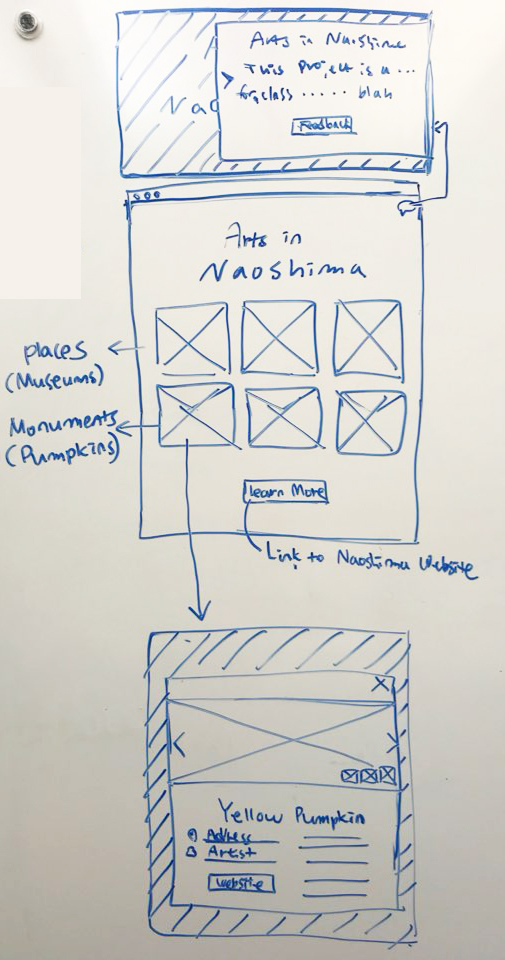 Arts in Naoshima
This Project is a ...
for class ..... blah
Feedback
Nao
Arts in
Naoshima
places
(Museums)
Monuments
(Pumpkins)
Learn More
Link to Naoshima Website
Yellow Pumpkin
Address
Artist
Website